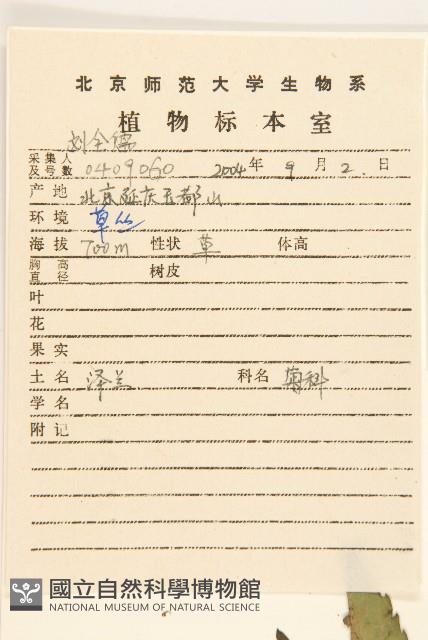 北京师范大学生物系
植物标本室
刘全儒
采集人及号数 0409060 2004年 9月 2.日
产地 北京延庆玉都山
环境 草丛
海拔 700m 性状 草 体高
胸高直径 树皮
叶
花
果实
土名 泽兰 科名 菊科
学名
附记
國立自然科學博物館
NATIONAL MUSEUM OF NATURAL SCIENCE